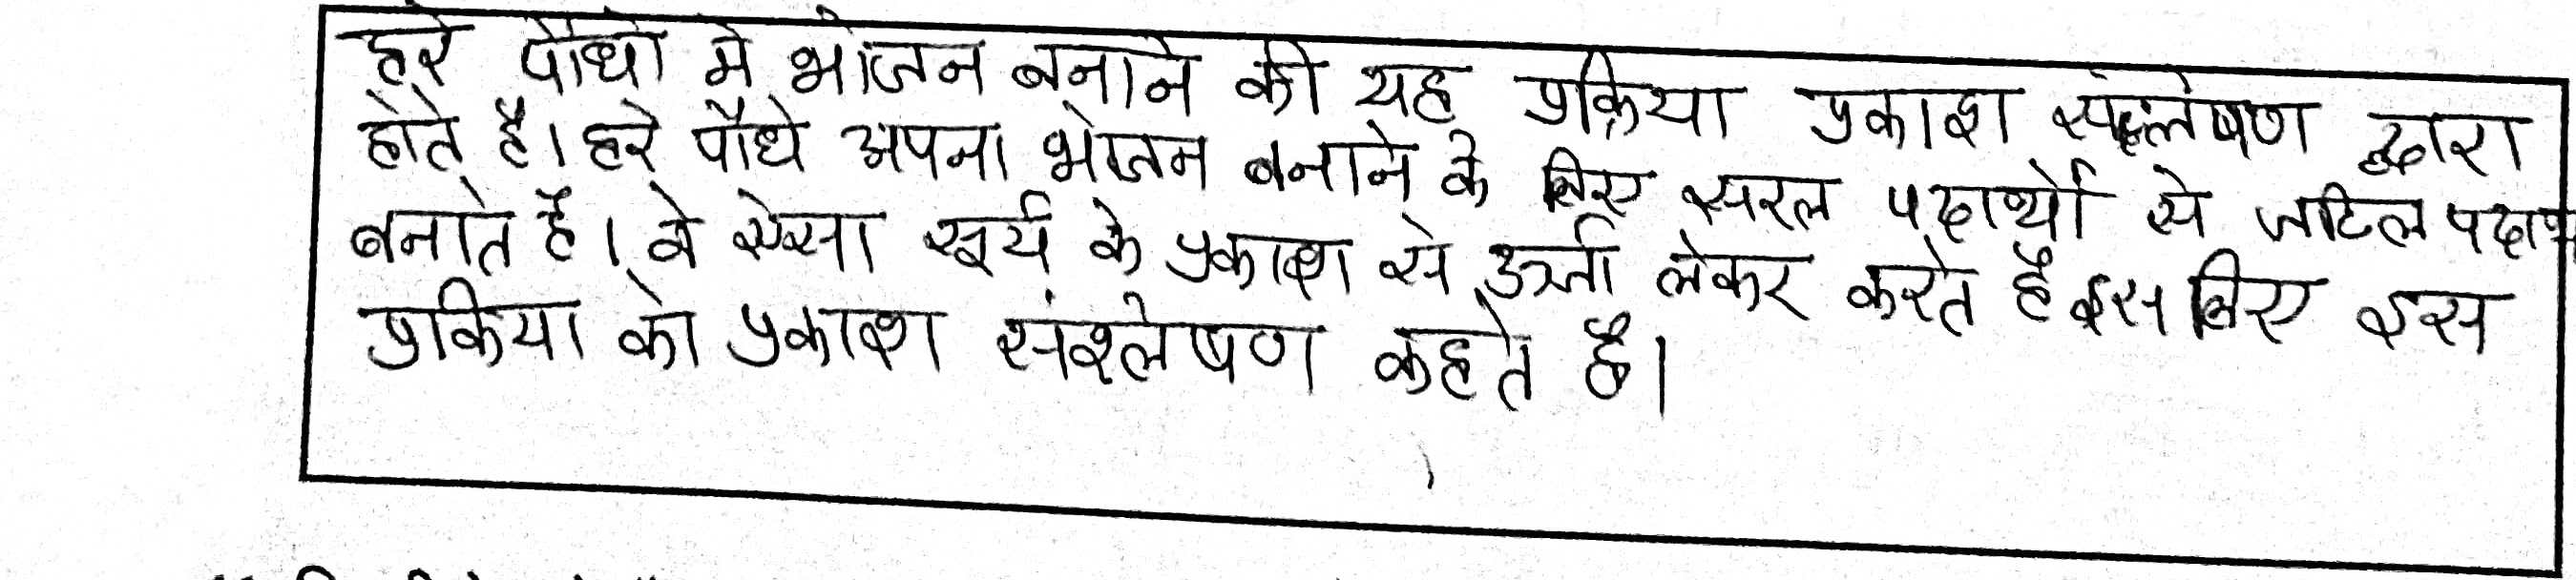 हरे पौधो मे भोजन बनाने की यह प्रक्रिया प्रकाश संश्लेषण द्वारा
होते है। हरे पौधे अपना भोजन बनाने के लिए सरल पदार्थो से जटिल पदार्थ
बनाते है। वे ऐसा सूर्य के प्रकाश से ऊर्जा लेकर करते है इसलिए इस
प्रकिया को प्रकाश संश्लेषण कहते है।